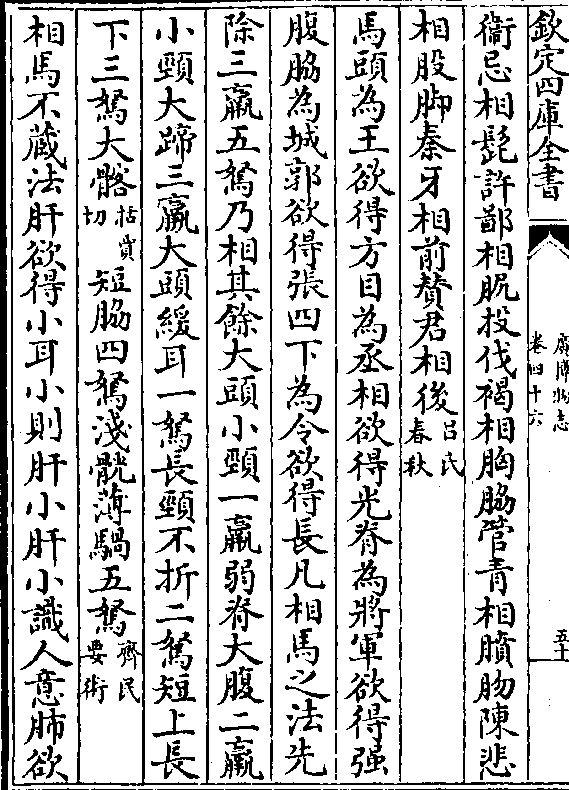 欽定四庫全書
廣博物志
卷四十六
五十
衛忌相髭許鄙相䘒投伐褐相胸脇管青相䐔肳陳悲
相股脚秦牙相前贊君相後呂氏
春秋
馬頭為王欲得方目為丞相欲得光脊為將軍欲得强
腹脇為城郭欲得張四下為令欲得長凡相馬之法先
除三羸五駑乃相其餘大頭小頸一羸弱脊大腹二羸
小頸大蹄三羸大頭緩耳一駑長頸不折二駑短上長
下三駑大髂枯賞
切短脇四駑淺髖薄騧五駑齊民
要術
相馬不藏法肝欲得小耳小則肝小肝小識人意肺欲